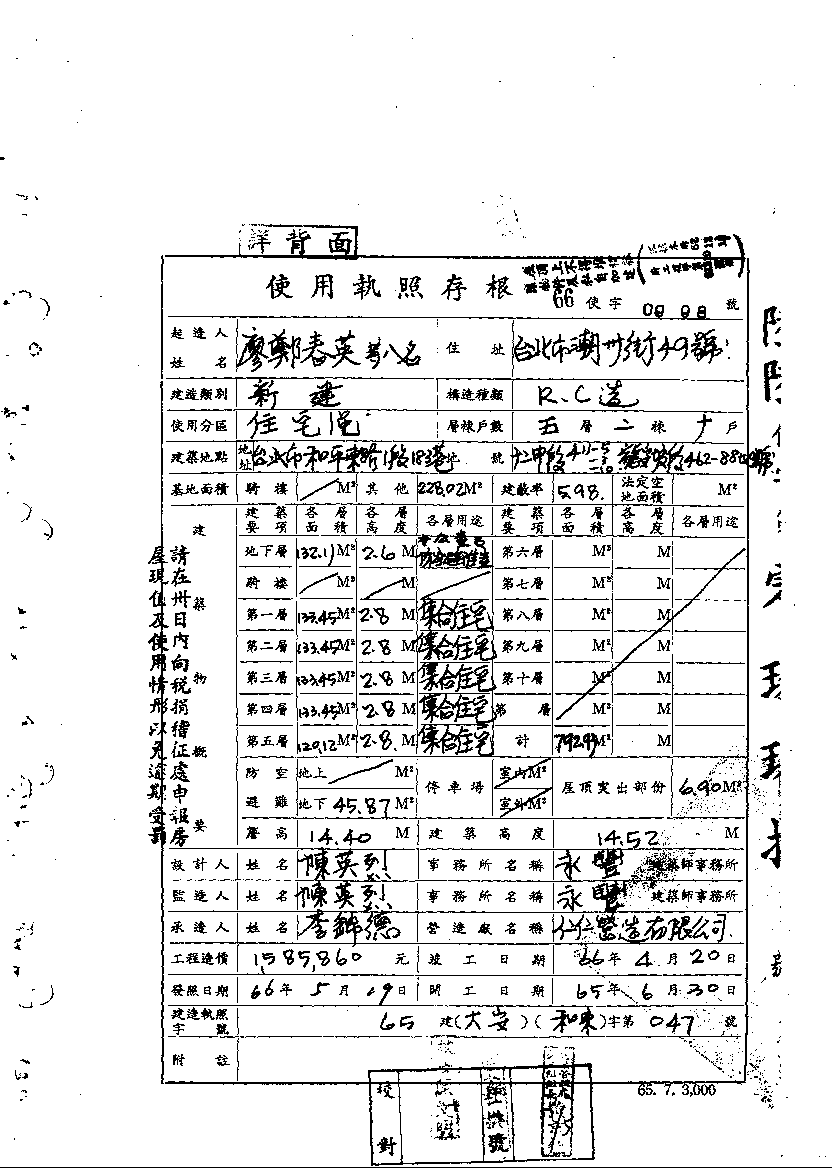 詳背面
使用執照存根
66 使字 0098 號
起造人姓名 廖鄭春英等八名 住址 台北市潮州街49號
建造類別 新建 構造種類 R.C造
使用分區 住宅區 層棟戶數 五層二棟十戶
建築地點 地址 台北市和平東路1段183巷 地號
基地面積 騎樓 M² 其他 228.02M² 建蔽率 598. 法定空地面積 M²
建築物概要
建築要項 各層面積 各層高度 各層用途 建築要項 各層面積 各層高度 各層用途
地下層 132.11M² 2.6M 第六層 M² M
騎樓 M² M 第七層 M² M
第一層 133.45M² 2.8M 集合住宅 第八層 M² M
第二層 133.45M² 2.8M 集合住宅 第九層 M² M
第三層 133.45M² 2.8M 集合住宅 第十層 M² M
第四層 133.45M² 2.8M 集合住宅 第 層 M² M
第五層 120.12M² 2.8M 集合住宅 計 M² M
防空避難 地上 M² 地下 45.87M² 停車場 室內M² 室外M² 屋頂突出部份 6.90M²
簷高 14.40M 建築高度 14.52M
設計人 姓名 陳英烈 事務所名稱 永豐 建築師事務所
監造人 姓名 陳英烈 事務所名稱 永豐 建築師事務所
承造人 姓名 李錦德 營造廠名稱 仁仁營造有限公司
工程造價 1,585,860元 竣工日期 66年4月20日
發照日期 66年5月19日 開工日期 65年6月30日
建造執照字號 65 建(大安)(和東)字第047號
附註
請在卅日內向稅捐稽征處申報房
屋現值及使用情形以免逾期受罰
校對
65. 7. 3,000